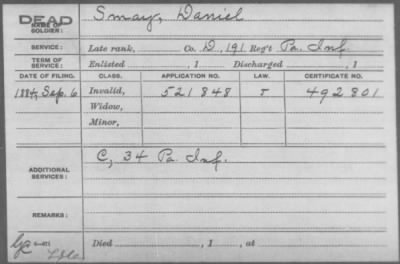 DEAD
NAME OF SOLDIER: Smay, Daniel
SERVICE: Late rank, Co. D, 191 Reg't Pa. Inf.
TERM OF SERVICE: Enlisted , 1 Discharged , 1
DATE OF FILING. CLASS. APPLICATION NO. LAW. CERTIFICATE NO.
1884, Sep. 6 Invalid, 521848 492801
Widow,
Minor,
C, 34 Pa. Inf.
ADDITIONAL SERVICES:
REMARKS:
Died , 1 , at